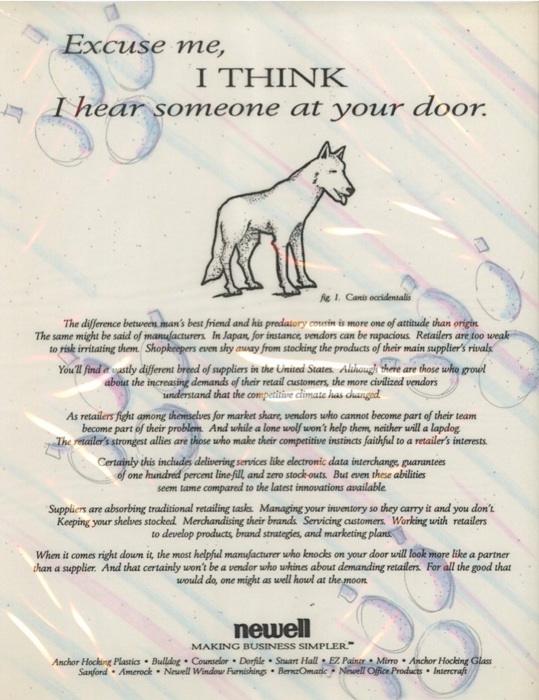 Excuse me,
I THINK
I hear someone at your door.
fig. 1. Canis occidentalis
The difference between man's best friend and his predatory cousin is more one of attitude than origin.
The same might be said of manufacturers. In Japan, for instance, vendors can be rapacious. Retailers are too weak
to risk irritating them. Shopkeepers even shy away from stocking the products of their main supplier's rivals.
You'll find a vastly different breed of suppliers in the United States. Although there are those who growl
about the increasing demands of their retail customers, the more civilized vendors
understand that the competitive climate has changed.
As retailers fight among themselves for market share, vendors who cannot become part of their team
become part of their problem. And while a lone wolf won't help them, neither will a lapdog.
The retailer's strongest allies are those who make their competitive instincts faithful to a retailer's interests.
Certainly this includes delivering services like electronic data interchange, guarantees
of one hundred percent line-fill, and zero stock-outs. But even these abilities
seem tame compared to the latest innovations available.
Suppliers are absorbing traditional retailing tasks. Managing your inventory so they carry it and you don't.
Keeping your shelves stocked. Merchandising their brands. Servicing customers. Working with retailers
to develop products, brand strategies, and marketing plans.
When it comes right down it, the most helpful manufacturer who knocks on your door will look more like a partner
than a supplier. And that certainly won't be a vendor who whines about demanding retailers. For all the good that
would do, one might as well howl at the moon.
newell
MAKING BUSINESS SIMPLER.™
Anchor Hocking Plastics • Bulldog • Counselor • Dorfile • Stuart Hall • EZ Paintr • Mirro • Anchor Hocking Glass
Sanford • Amerock • Newell Window Furnishings • BernzOmatic • Newell Office Products • Intercraft